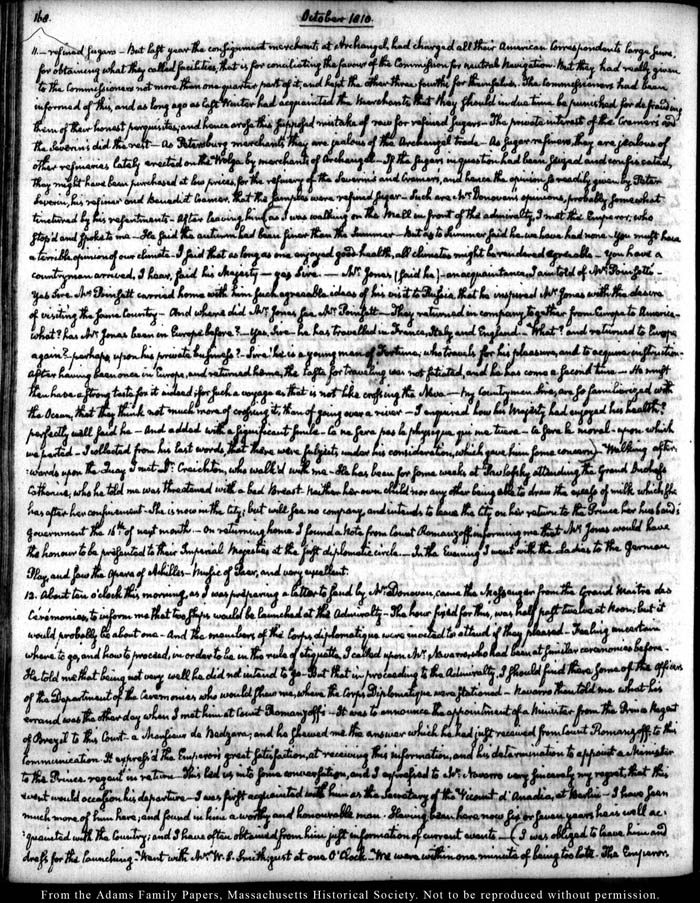 168.
October 1810.
11. — refined sugars — But last year the consignment merchants at Archangel, had charged all their American Correspondents large sums,
for obtaining what they called facilities, that is for conciliating the favour of the Commission for neutral Navigation. But they had really given
to the Commissioners not more than one quarter part of it, and kept the other three fourths for themselves. The Commissioners had been
informed of this, and as long ago as last Winter had acquainted the Merchants, that they should in due time be punished for defrauding
them of their honest perquisites; and hence arose this supposed mistake of raw for refined sugars — The private interest of the Cramers and
the Severins did the rest — As Petersburg merchants they are jealous of the Archangel trade — As Sugar refiners they are jealous of
other refineries lately erected on the Wolga by merchants of Archangel — If the sugars in question had been seized and confiscated,
they might have been purchased at low prices, for the refinery of the Severins and Cramers, and hence the opinion so readily given by Peter
Severin, his refiner and Benedict Cramer, that the samples were refined sugar — Such are Mr. Donovan's opinions, probably somewhat
tinctured by his resentments — After leaving him (as I was walking on the Mall in front of the admiralty, I met the Emperor, who
stop'd and spoke to me — He said the autumn had been finer than the Summer — but as to summer said he we have had none — You must have
a terrible opinion of our climate — I said that as long as one enjoyed good health, all climates might be rendered agreeable — You have a
countryman arrived, I hear, said his Majesty — yes Sire. — Mr. Jones, (said he) — an acquaintance I am told of Mr. Poinsett's —
Yes Sire. Mr. Poinsett carried home with him such agreeable ideas of his visit to Russia, that he inspired Mr. Jones with the desire
of visiting the same Country — And where did Mr. Jones see Mr. Poinsett — They returned in company together from Europe to America —
what? has Mr. Jones been in Europe before? — Yes, Sire — he has travelled in France, Italy and England. — "What? and returned to Europe
again? perhaps upon his private business? — Sire! he is a young man of Fortune, who travels for his pleasure, and to acquire instruction —
After having been once in Europe, and returned home, the taste for traveling was not satiated, and he has come a second time — He must
then have a strong taste for it indeed; for such a voyage as that is not like crossing the Neva — My Countrymen Sire, are so familiarized with
the Ocean, that they think not much more of crossing it, than of going over a river — I enquired how his Majesty had enjoyed his health?
perfectly well said he — And added with a significant smile — ce ne sera pas le physique qui me tuera — ce sera le moral — upon which
we parted — I collected from his last words, that there were subjects under his consideration, which gave him some concern) — Walking after-
wards upon the Quay I met Dr. Creighton, who walk'd with me — He has been for some weeks at Pavlofsky attending the Grand Duchess
Catherine, who he told me was threatened with a bad Breast. Neither her own child nor any other being able to draw the excess of milk which she
has after her confinement. She is now in the City; but will see no company, and intends to leave the City on her return to the Prince her husband's
government the 16th. of next month — On returning home I found a Note from Count Romanzoff, informing me that Mr. Jones would have
the honour to be presented to their Imperial Majesties at the first diplomatic circle — In the Evening I went with the Ladies to the German
Play, and saw the Opera of Achilles — Music of Paer, and very excellent.
12. About ten o'clock this morning, as I was preparing a letter to send by Mr. Donovan, came the Messenger from the Grand Maitre des
Cérémonies, to inform me that two ships would be launched at the Admiralty — The hour fixed for this, was half past twelve at Noon; but it
would probably be about one — And the members of the Corps diplomatique were invited to attend if they pleased — Feeling uncertain
where to go, and how to proceed, in order to be in the rule of etiquette, I called upon Mr. Navarro, who had been at similar ceremonies before.
He told me that being not very well he did not intend to go — But that in proceeding to the Admiralty, I should find there some of the officers
of the Department of the Ceremonies who would shew me, where the Corps Diplomatique were stationed — Navarro then told me what his
errand was the other day when I met him at Count Romanzoff's — It was to announce the appointment of a Minister from the Prince Regent
of Brazil to this Court — a Monsieur de Bezzara; and he shewed me the answer which he had just received from Count Romanzoff, to this
communication. It express'd the Emperor's great satisfaction, at receiving this information, and his determination to appoint a Minister
to the Prince regent in return — This led us into some conversation, and I expressed to Mr. Navarro very sincerely my regret, that this
event would occasion his departure — I was first acquainted with him as the Secretary of the Vicount d'Anadia, at Berlin — I have seen
much more of him here; and found in him a worthy and honourable man — Having been here now six or seven years he is well ac-
quainted with the Country; and I have often obtained from him just information of current events — (I was obliged to leave him and
dress for the launching — Went with Mr. W. S. Smith; just at one O'Clock — We were within one minute of being too late. The Emperor
From the Adams Family Papers, Massachusetts Historical Society. Not to be reproduced without permission.